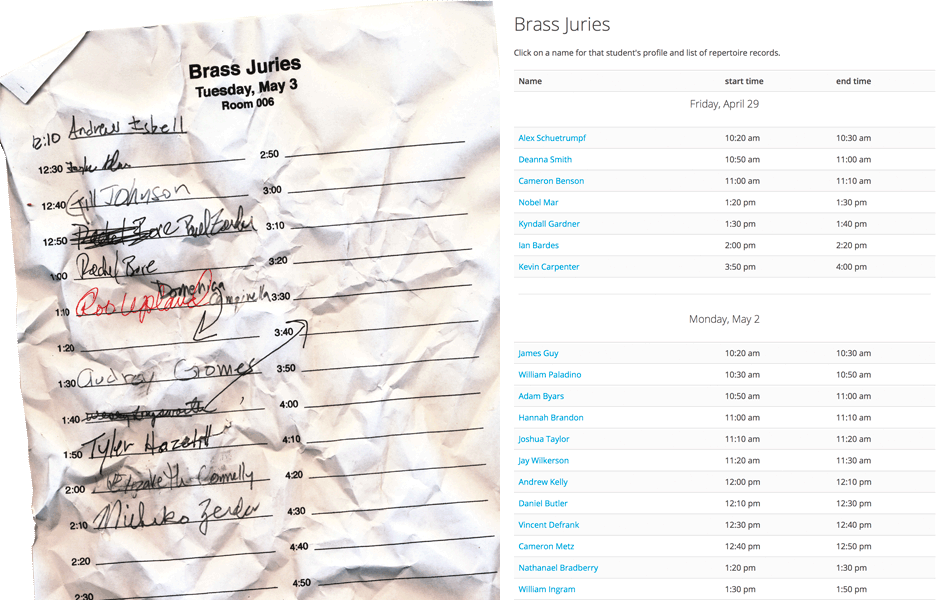 Brass Juries
Tuesday, May 3
Room 006
12:10 Andrew Isbell
12:30
12:40 Jill Johnson
12:50 Rachel Bore Paul Zender
1:00 Rachel Bore
Domenica
1:10 Rob Upland Campinella
1:20
1:30 Audrey Gomes
1:40
1:50 Tyler Hazelett
2:00 Elizabeth Connelly
2:10 Michiko Zender
2:20
2:30
2:50
3:00
3:10
3:20
3:30
3:40
3:50
4:00
4:10
4:20
4:30
4:40
4:50
Brass Juries
Click on a name for that student's profile and list of repertoire records.
Name start time end time
Friday, April 29
Alex Schuetrumpf 10:20 am 10:30 am
Deanna Smith 10:50 am 11:00 am
Cameron Benson 11:00 am 11:10 am
Nobel Mar 1:20 pm 1:30 pm
Kyndall Gardner 1:30 pm 1:40 pm
Ian Bardes 2:00 pm 2:20 pm
Kevin Carpenter 3:50 pm 4:00 pm
Monday, May 2
James Guy 10:20 am 10:30 am
William Paladino 10:30 am 10:50 am
Adam Byars 10:50 am 11:00 am
Hannah Brandon 11:00 am 11:10 am
Joshua Taylor 11:10 am 11:20 am
Jay Wilkerson 11:20 am 11:30 am
Andrew Kelly 12:00 pm 12:10 pm
Daniel Butler 12:10 pm 12:30 pm
Vincent Defrank 12:30 pm 12:40 pm
Cameron Metz 12:40 pm 12:50 pm
Nathanael Bradberry 1:20 pm 1:30 pm
William Ingram 1:30 pm 1:50 pm